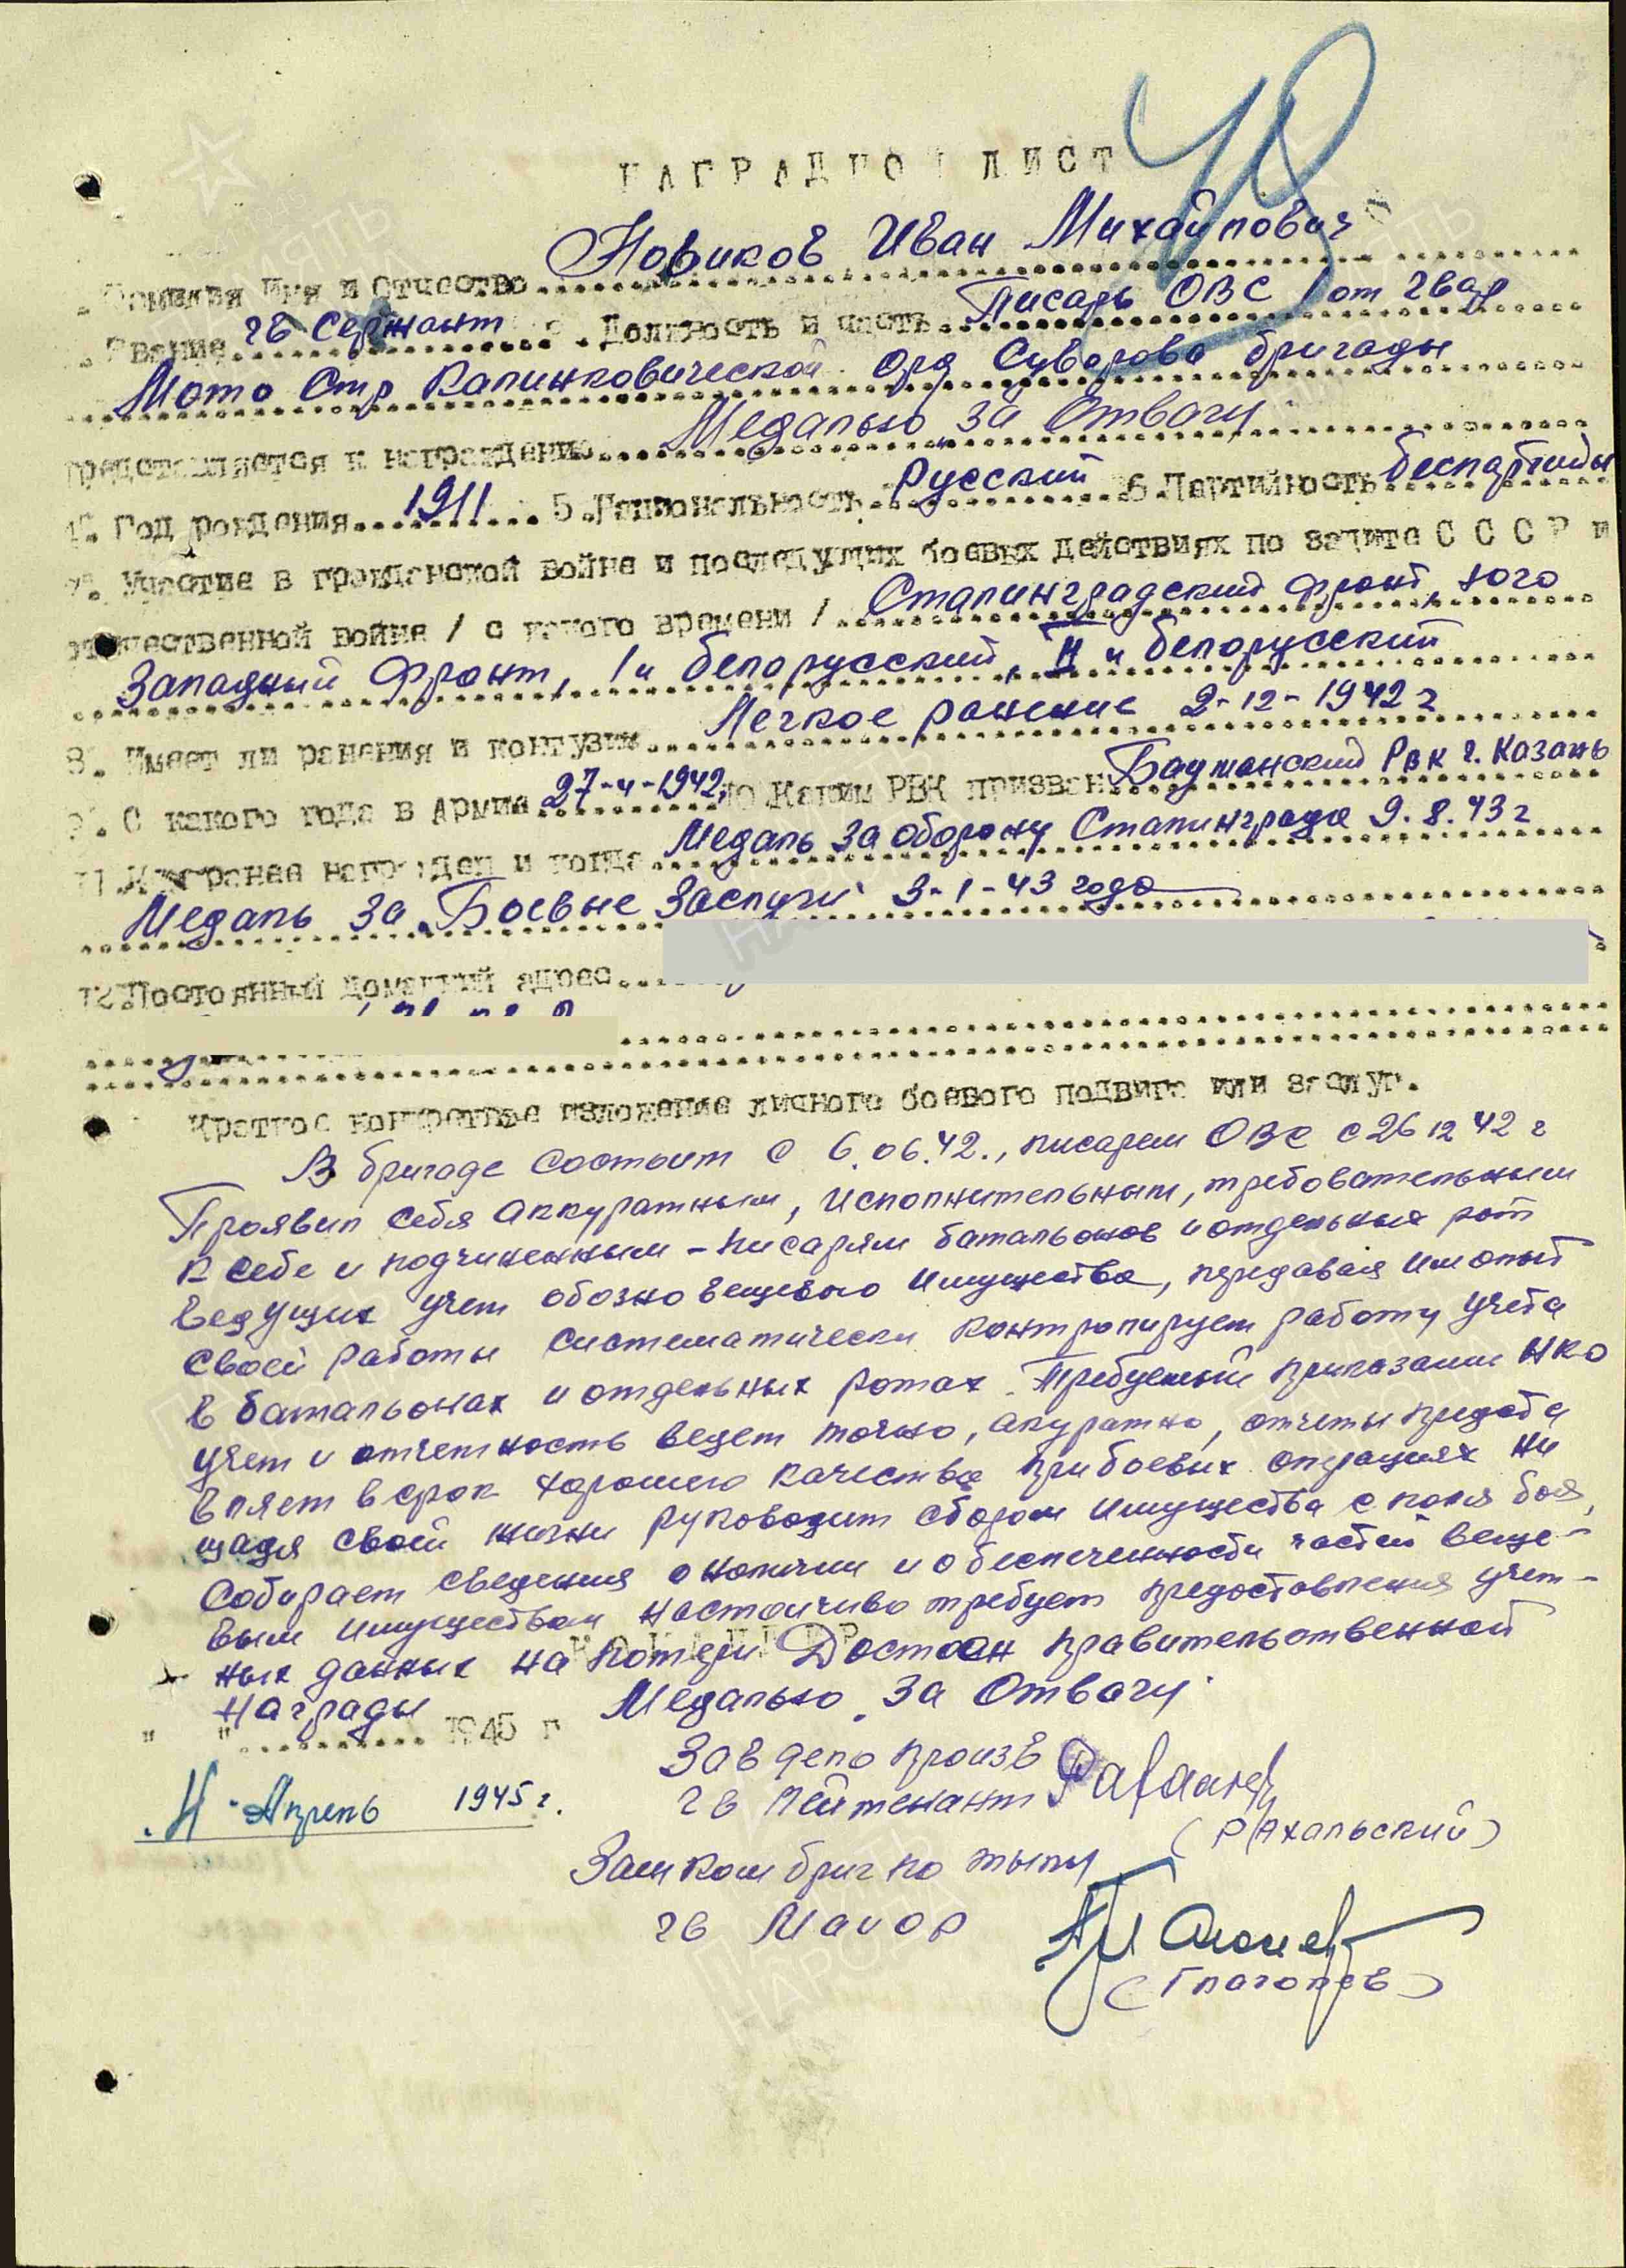 НАГРАДНОЙ ЛИСТ
Фамилия Имя и Отчество Новиков Иван Михайлович
Звание гв Сержант Должность и часть Писарь ОВС 1 от гвар
Мото Стр Калинковической орд Суворова бригады
представляется к награждению Медалью „За Отвагу"
4. Год рождения 1911 5. Национальность Русский 6. Партийность беспартийный
7. Участие в гражданской войне и последующих боевых действиях по защите СССР и
отечественной войне / с какого времени / Сталинградский фронт, Юго
Западный Фронт, 1й белорусский, II й белорусский
8. Имеет ли ранения и контузии Легкое ранение 2-12-1942 г
9. С какого года в армии 27-4-1942, 10 Каким РВК призван Бауманский Рвк г. Казань
11 Чем ранее награжден и когда Медаль За оборону Сталинграда 9.8.43 г
Медаль За „Боевые Заслуги" 3-1-43 года
12 Постоянный домашний адрес
Краткое конкретное изложение личного боевого подвига или заслуг.
В бригаде состоит с 6.06.42., писарем ОВС с 26 12 42 г
Проявил себя аккуратным, исполнительным, требовательным
к себе и подчиненным - писарям батальонов и отдельных рот
ведущих учет обозно вещевого имущества, передавая им опыт
своей работы систематически контролирует работу учета
в батальонах и отдельных ротах. Требуемый приказами НКО
учет и отчетность ведет точно, акуратно, отчеты предоста
вляет в срок хорошего качества при боевых операциях не
щадя своей жизни руководит сбором имущества с поля боя,
собирает сведения о наличии и обеспеченности частей веще-
вым имуществом настойчиво требует предоставления учет-
ных данных на потери Достоен правительственной
награды Медалью „За Отвагу"
" " 1945 г
Зав дело произв
4 Апрель 1945 г. гв Лейтенант
(Рахальский)
Зам ком бриг по тылу
гв Маиор
(Глаголев)